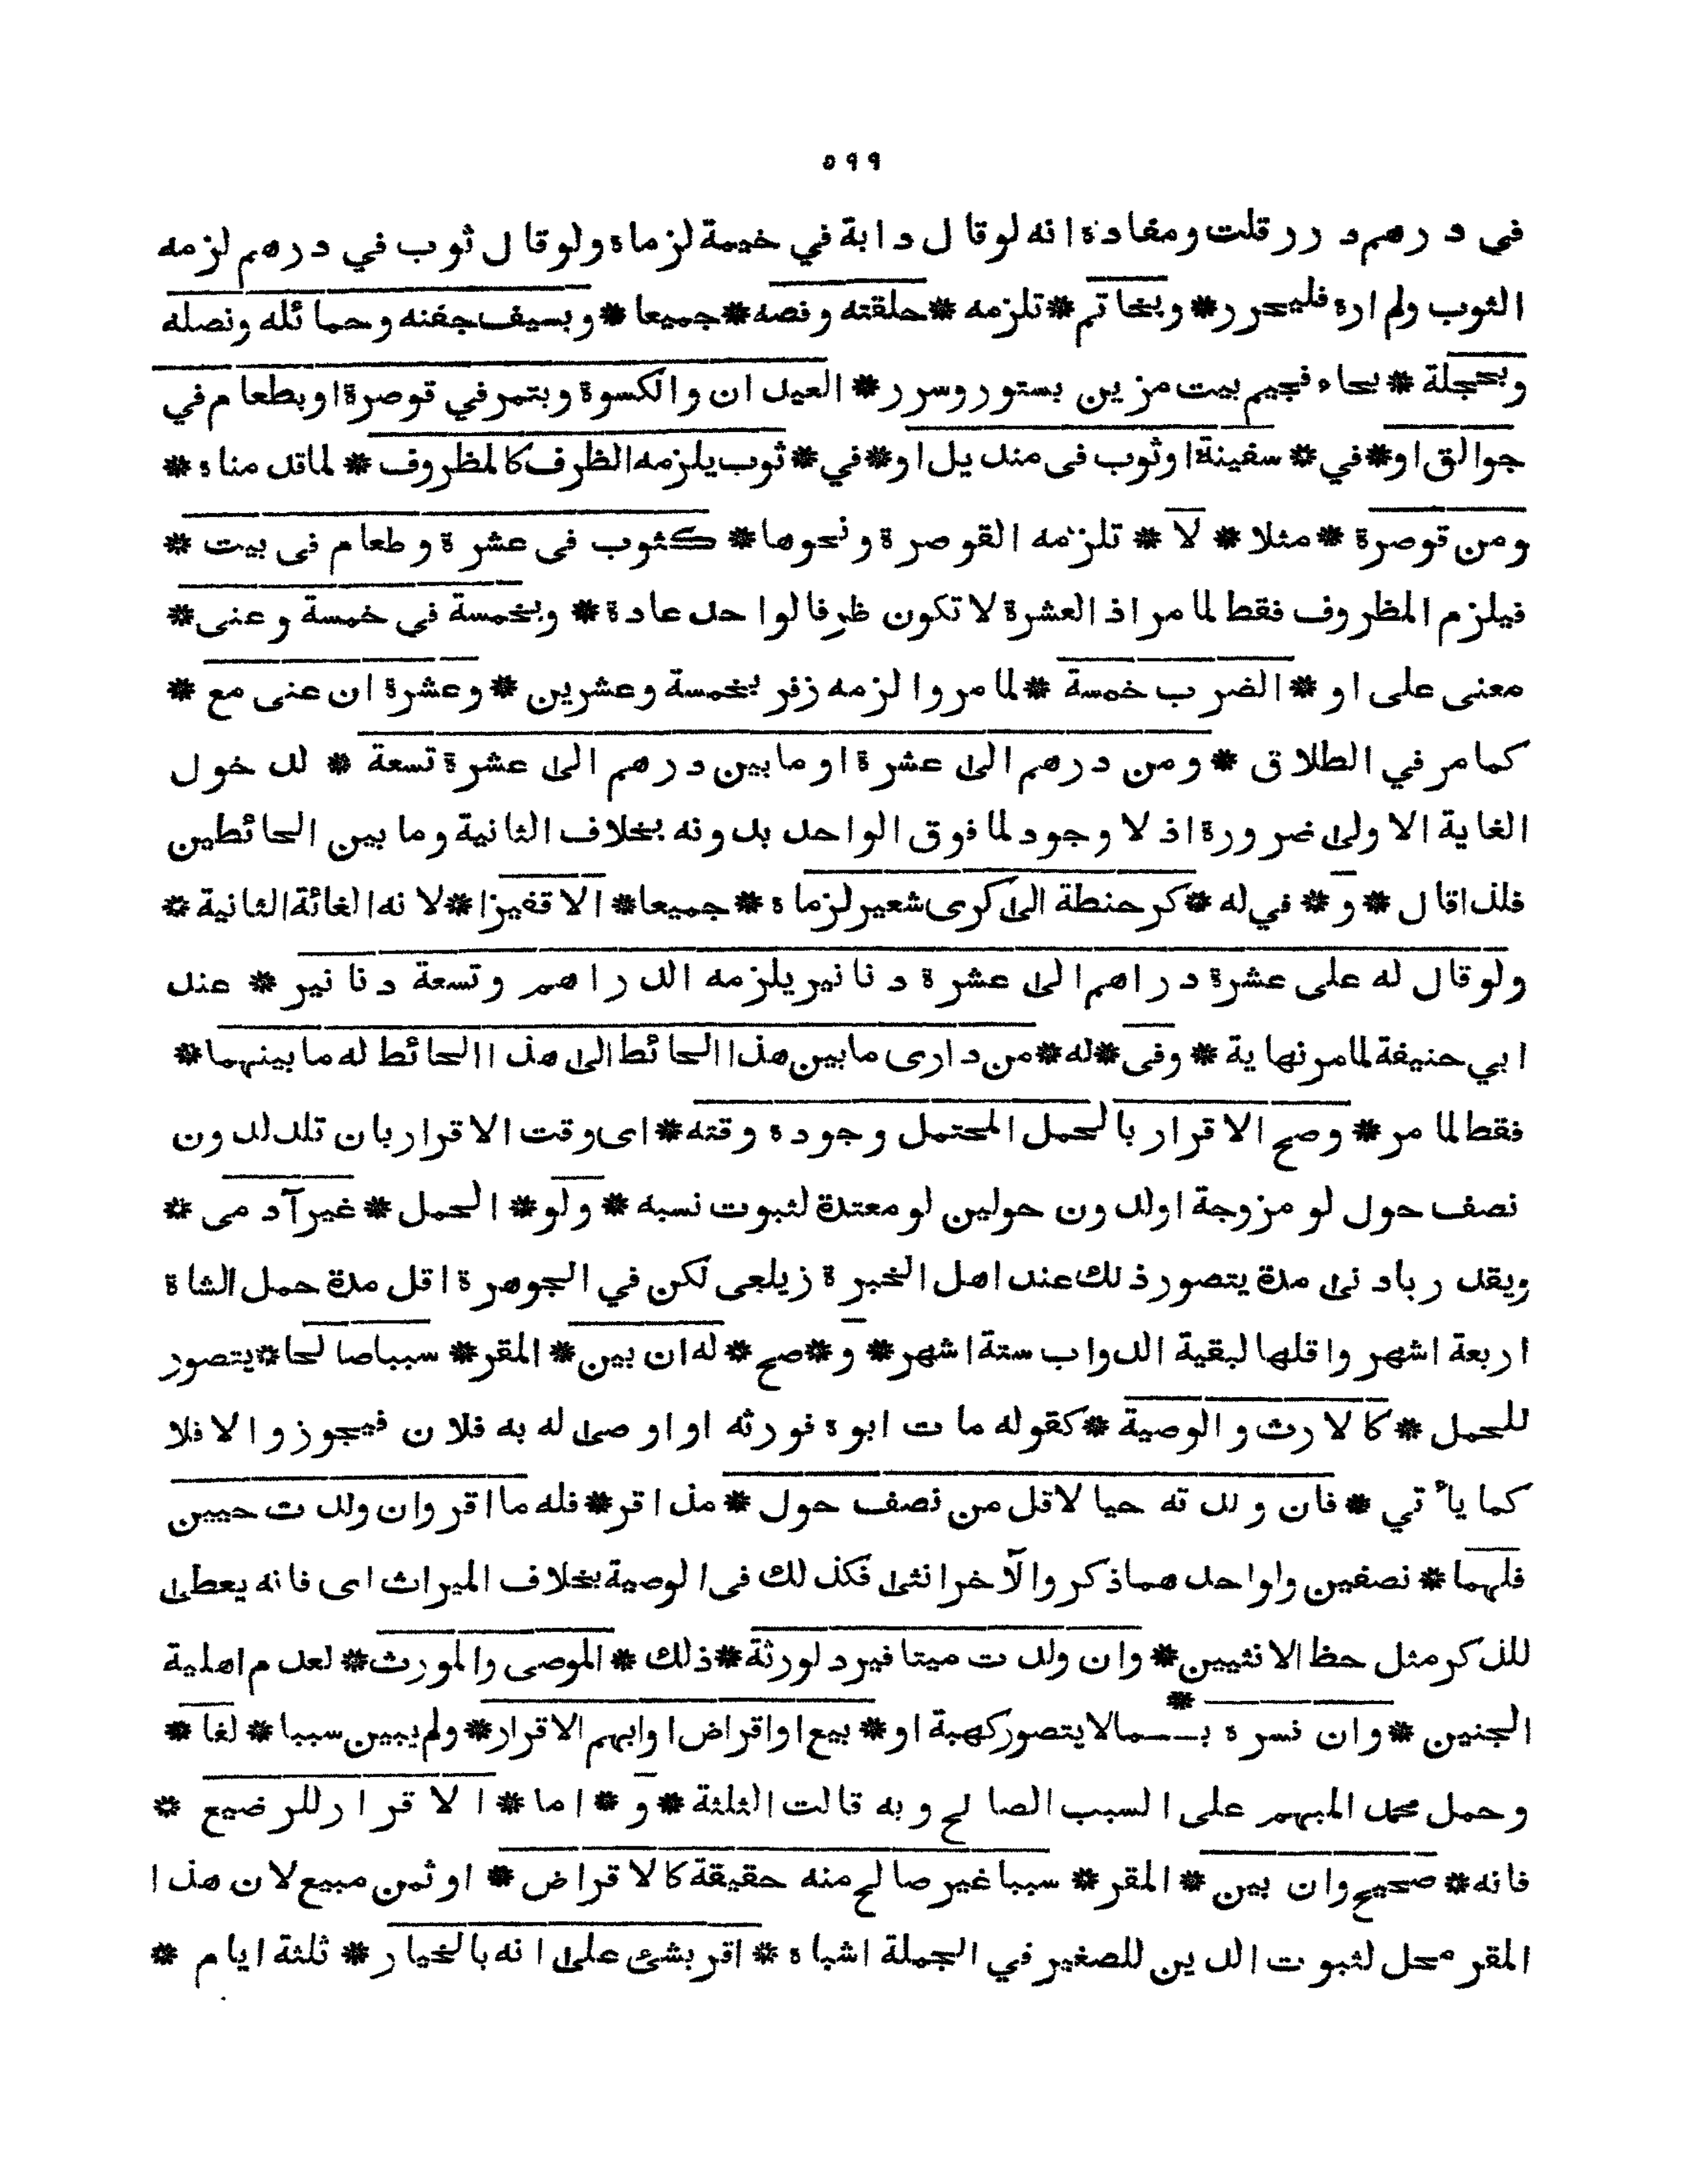 ٥٩٩
في درهم درر قلت ومفاده انه لو قال دابة في خيمة لزماه ولو قال ثوب في درهم لزمه
الثوب ولم اره فليحرر * وبخاتم * تلزمه * حلقته وفصه * جميعا * وبسيف جفنه وحمائله ونصله
وبحجلة * بحاء فجيم بيت مزين بستور وسرر * العيدان والكسوة وبتمر في قوصرة او بطعام في
جوالق او * في * سفينة او ثوب فى منديل او * في * ثوب يلزمه الظرف كالمظروف * لما قدمناه *
ومن قوصرة * مثلا * لا * تلزمه القوصرة ونحوها * كثوب فى عشرة وطعام فى بيت *
فيلزم المظروف فقط لما مر اذ العشرة لا تكون ظرفا لواحد عادة * وبخمسة في خمسة وعنى *
معنى على او * الضرب خمسة * لما مر والزمه زفر بخمسة وعشرين * وعشرة ان عنى مع *
كما مر في الطلاق * ومن درهم الى عشرة او ما بين درهم الى عشرة تسعة * لدخول
الغاية الاولى ضرورة اذ لا وجود لما فوق الواحد بدونه بخلاف الثانية وما بين الحائطين
فلذا قال * و * في له * كر حنطة الى كرى شعير لزماه * جميعا * الا قفيزا * لانه الغائة الثانية *
ولو قال له على عشرة دراهم الى عشرة دنانير يلزمه الدراهم وتسعة دنانير * عند
ابي حنيفة لما مر نهاية * وفى * له * من دارى ما بين هذا الحائط الى هذا الحائط له ما بينهما *
فقط لما مر * وصح الاقرار بالحمل المحتمل وجوده وقته * اى وقت الاقرار بان تلد لدون
نصف حول لو مزوجة او لدون حولين لو معتدة لثبوت نسبه * ولو * الحمل * غير آدمى *
ويقدر بادنى مدة يتصور ذلك عند اهل الخبرة زيلعى لكن في الجوهرة اقل مدة حمل الشاة
اربعة اشهر واقلها لبقية الدواب ستة اشهر * و * صح * له ان بين * المقر * سببا صالحا * يتصور
للحمل * كالارث والوصية * كقوله مات ابوه فورثه او اوصى له به فلان فيجوز والا فلا
كما يأتي * فان ولدته حيا لاقل من نصف حول * مذ اقر * فله ما اقر وان ولدت حيين
فلهما * نصفين ولو احدهما ذكر والآخر انثى فكذلك فى الوصية بخلاف الميراث اى فانه يعطى
للذكر مثل حظ الانثيين * وان ولدت ميتا فيرد لورثة * ذلك * الموصى والمورث * لعدم اهلية
الجنين * وان فسره بـــما * لا يتصور كهبة او * بيع او اقراض او ابهم الاقرار * ولم يبين سببا * لغا *
وحمل محمد المبهم على السبب الصالح وبه قالت الثلثة * و * اما * الاقرار للرضيع *
فانه * صحيح وان بين * المقر * سببا غير صالح منه حقيقة كالاقراض * او ثمن مبيع لان هذا
المقر محل لثبوت الدين للصغير في الجملة اشباه * اقر بشئ على انه بالخيار * ثلثة ايام *